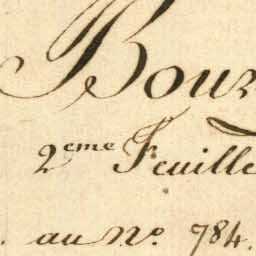 Bour
2ème Feuille
au N.º 784.